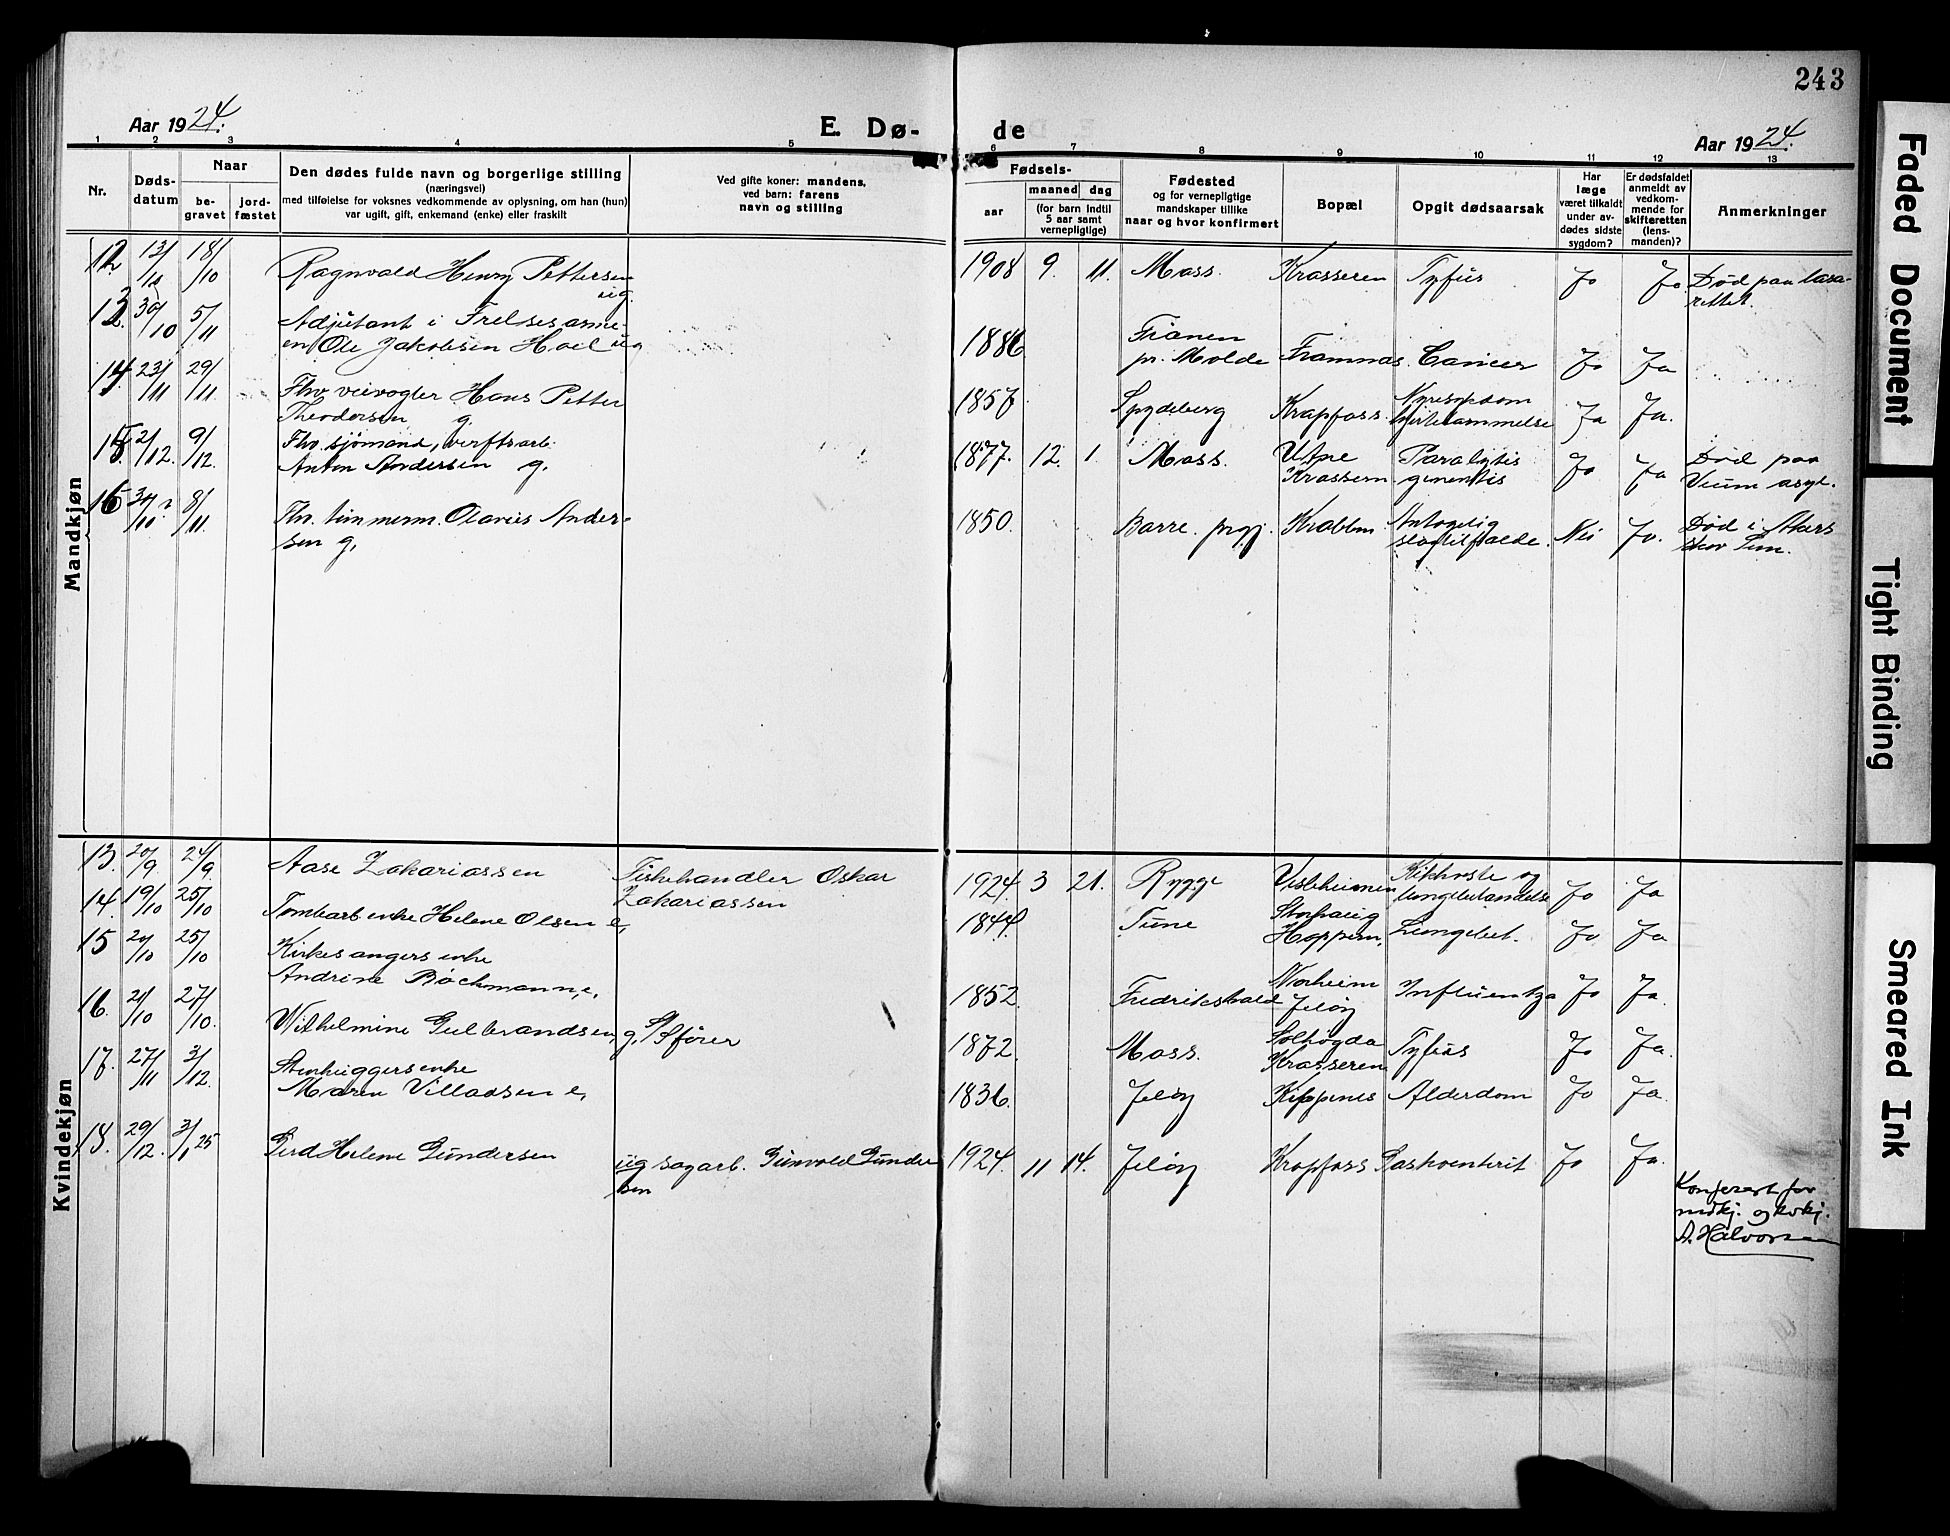 243
Aar 1924.
E. Dø-
de
Aar 1924.
1 2 3 4 5 6 7 8 9 10 11 12 13
Nr.
Døds-
datum
Naar
be-
gravet
jord-
fæstet
Den dødes fulde navn og borgerlige stilling
(næringsvei)
med tilføielse for voksnes vedkommende av oplysning, om han (hun)
var ugift, gift, enkemand (enke) eller fraskilt
Ved gifte koner: mandens,
ved barn: farens
navn og stilling
Fødsels-
aar
maaned dag
(for barn indtil
5 aar samt
vernepligtige)
Fødested
og for vernepligtige
mandskaper tillike
naar og hvor konfirmert
Bopæl
Opgit dødsaarsak
Har
læge
været tilkaldt
under av-
dødes sidste
sygdom?
Er dødsfaldet
anmeldt av
vedkom-
mende for
skifteretten
(lens-
manden)?
Anmerkninger
Mandkjøn
12. 13/10 18/10 Ragnvald Henry Pettersen ug. 1908 9. 11. Moss. Krasseren Tyfus Ja Ja Død paa lasa-
rettet.
13. 30/10 5/11 Adjutant i Frelsesarme-
en Ole Jakobsen Hoel ug 1886 pr. Molde Framnæs. Cancer Ja Ja
14. 23/11 29/11 Fhv. veivogter Hans Petter
Theodorsen g. 1857 Spydeberg Krapfoss. Nyresykdom
Ja Ja.
15. 2/12. 9/12. Fhv. sjömand, verftsarb.
Anton Andersen g. 1877. 12. 1. Moss. Krassern Paralysis
Ja Ja Død paa
Veum asyl.
16 30/10? 8/11. Fhv. timmerm. Olavus Ander-
sen g. 1850. Krabbm Antagelig
slagtilfælde. Nei Ja. Død i
Kvindekjøn
13. 20/9 24/9 Aase Zakariassen Fiskehandler Oskar
Zakariassen 1924. 3 21. Rygge Vesleheimen Kikhoste og
lungebetændelse Ja Ja
14. 19/10 25/10 Tombarb enke Helene Olsen e, 1844. Tune Storhaug
Hoppern. Lungebet. Ja Ja
15 20/10 25/10 Kirkesangers enke
Andrine Böchmann, e. 1852. Fredrikshald Norheim
Jelöy Influentza Ja Ja.
16. 21/10 27/10. Wilhelmine Gulbrandsen, g, förer 1872. Moss. Solhögda
Krasseren Tyfus Ja Ja.
17. 27/11 3/12. Stenhuggersenke
Maren Villadsen e, 1836. Jelöy Kippenes Alderdom Ja Ja.
18. 29/12. 3/1 25 Gerd Helene Gundersen ug sagarb. Gunvald Gunder
sen 1924. 11 14. Jelöy Krapfoss Gastroenterit Ja Ja.
Konferert for
mdkj. og kvkj.
A. Halvorsen
Faded Document
Tight Binding
Smeared Ink